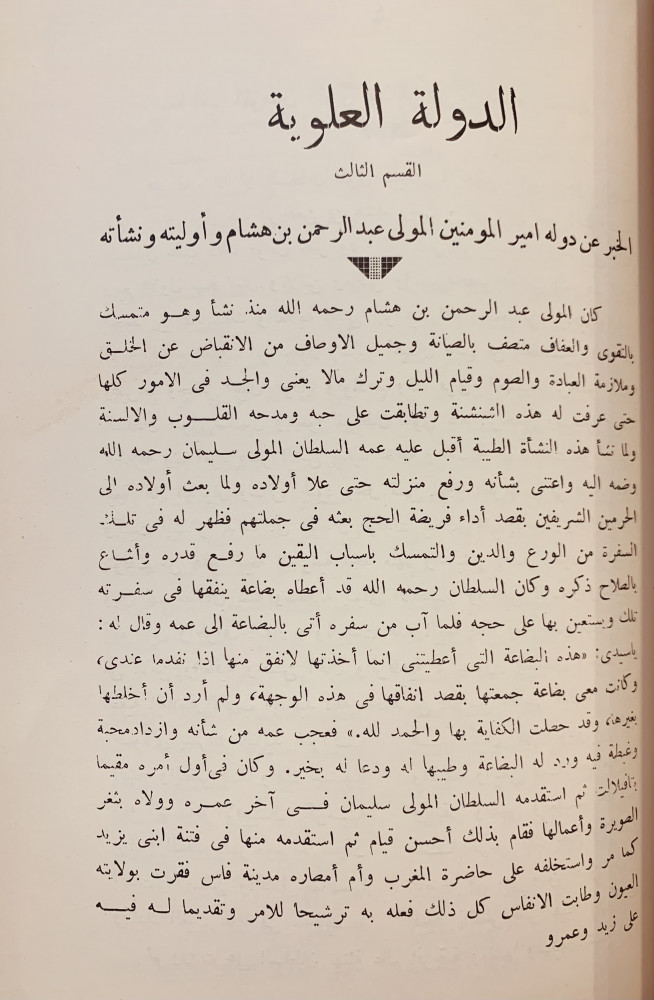 الدولة العلوية
القسم الثالث
الخبر عن دوله امير المومنين المولى عبد الرحمن بن هشام وأوليته ونشأته
كان المولى عبد الرحمن بن هشام رحمه الله منذ نشأ وهو متمسك
بالتقوى والعفاف متصف بالصيانة وجميل الاوصاف من الانقباض عن الخلق
وملازمة العبادة والصوم وقيام الليل وترك مالا يعنى والجد فى الامور كلها
حتى عرفت له هذه الشنشنة وتطابقت على حبه ومدحه القلوب والالسنة
ولما نشأ هذه النشأة الطيبة أقبل عليه عمه السلطان المولى سليمان رحمه الله
وضمه اليه واعتنى بشأنه ورفع منزلته حتى علا أولاده ولما بعث أولاده الى
الحرمين الشريفين بقصد أداء فريضة الحج بعثه فى جملتهم فظهر له فى تلك
السفرة من الورع والدين والتمسك باسباب اليقين ما رفع قدره وأشاع
بالصلاح ذكره وكان السلطان رحمه الله قد أعطاه بضاعة ينفقها فى سفرته
تلك ويستعين بها على حجه فلما آب من سفره أتى بالبضاعة الى عمه وقال له :
ياسيدى: «هذه البضاعة التى أعطيتنى انما أخذتها لانفق منها اذا نفدما عندى،
وكانت معى بضاعة جمعتها بقصد انفاقها فى هذه الوجهة، ولم أرد أن أخلطها
بغيرها، وقد حصلت الكفاية بها والحمد لله.» فعجب عمه من شأنه وازداد محبة
وغبطة فيه ورد له البضاعة وطيبها له ودعا له بخير. وكان فى أول أمره مقيما
بتافيلالت ثم استقدمه السلطان المولى سليمان فى آخر عمره وولاه بثغر
الصويرة وأعمالها فقام بذلك أحسن قيام ثم استقدمه منها فى فتنة ابنى يزيد
كما مر واستخلفه على حاضرة المغرب وأم أمصاره مدينة فاس فقرت بولايته
العيون وطابت الانفاس كل ذلك فعله به ترشيحا للامر وتقديما له فيه
على زيد وعمرو